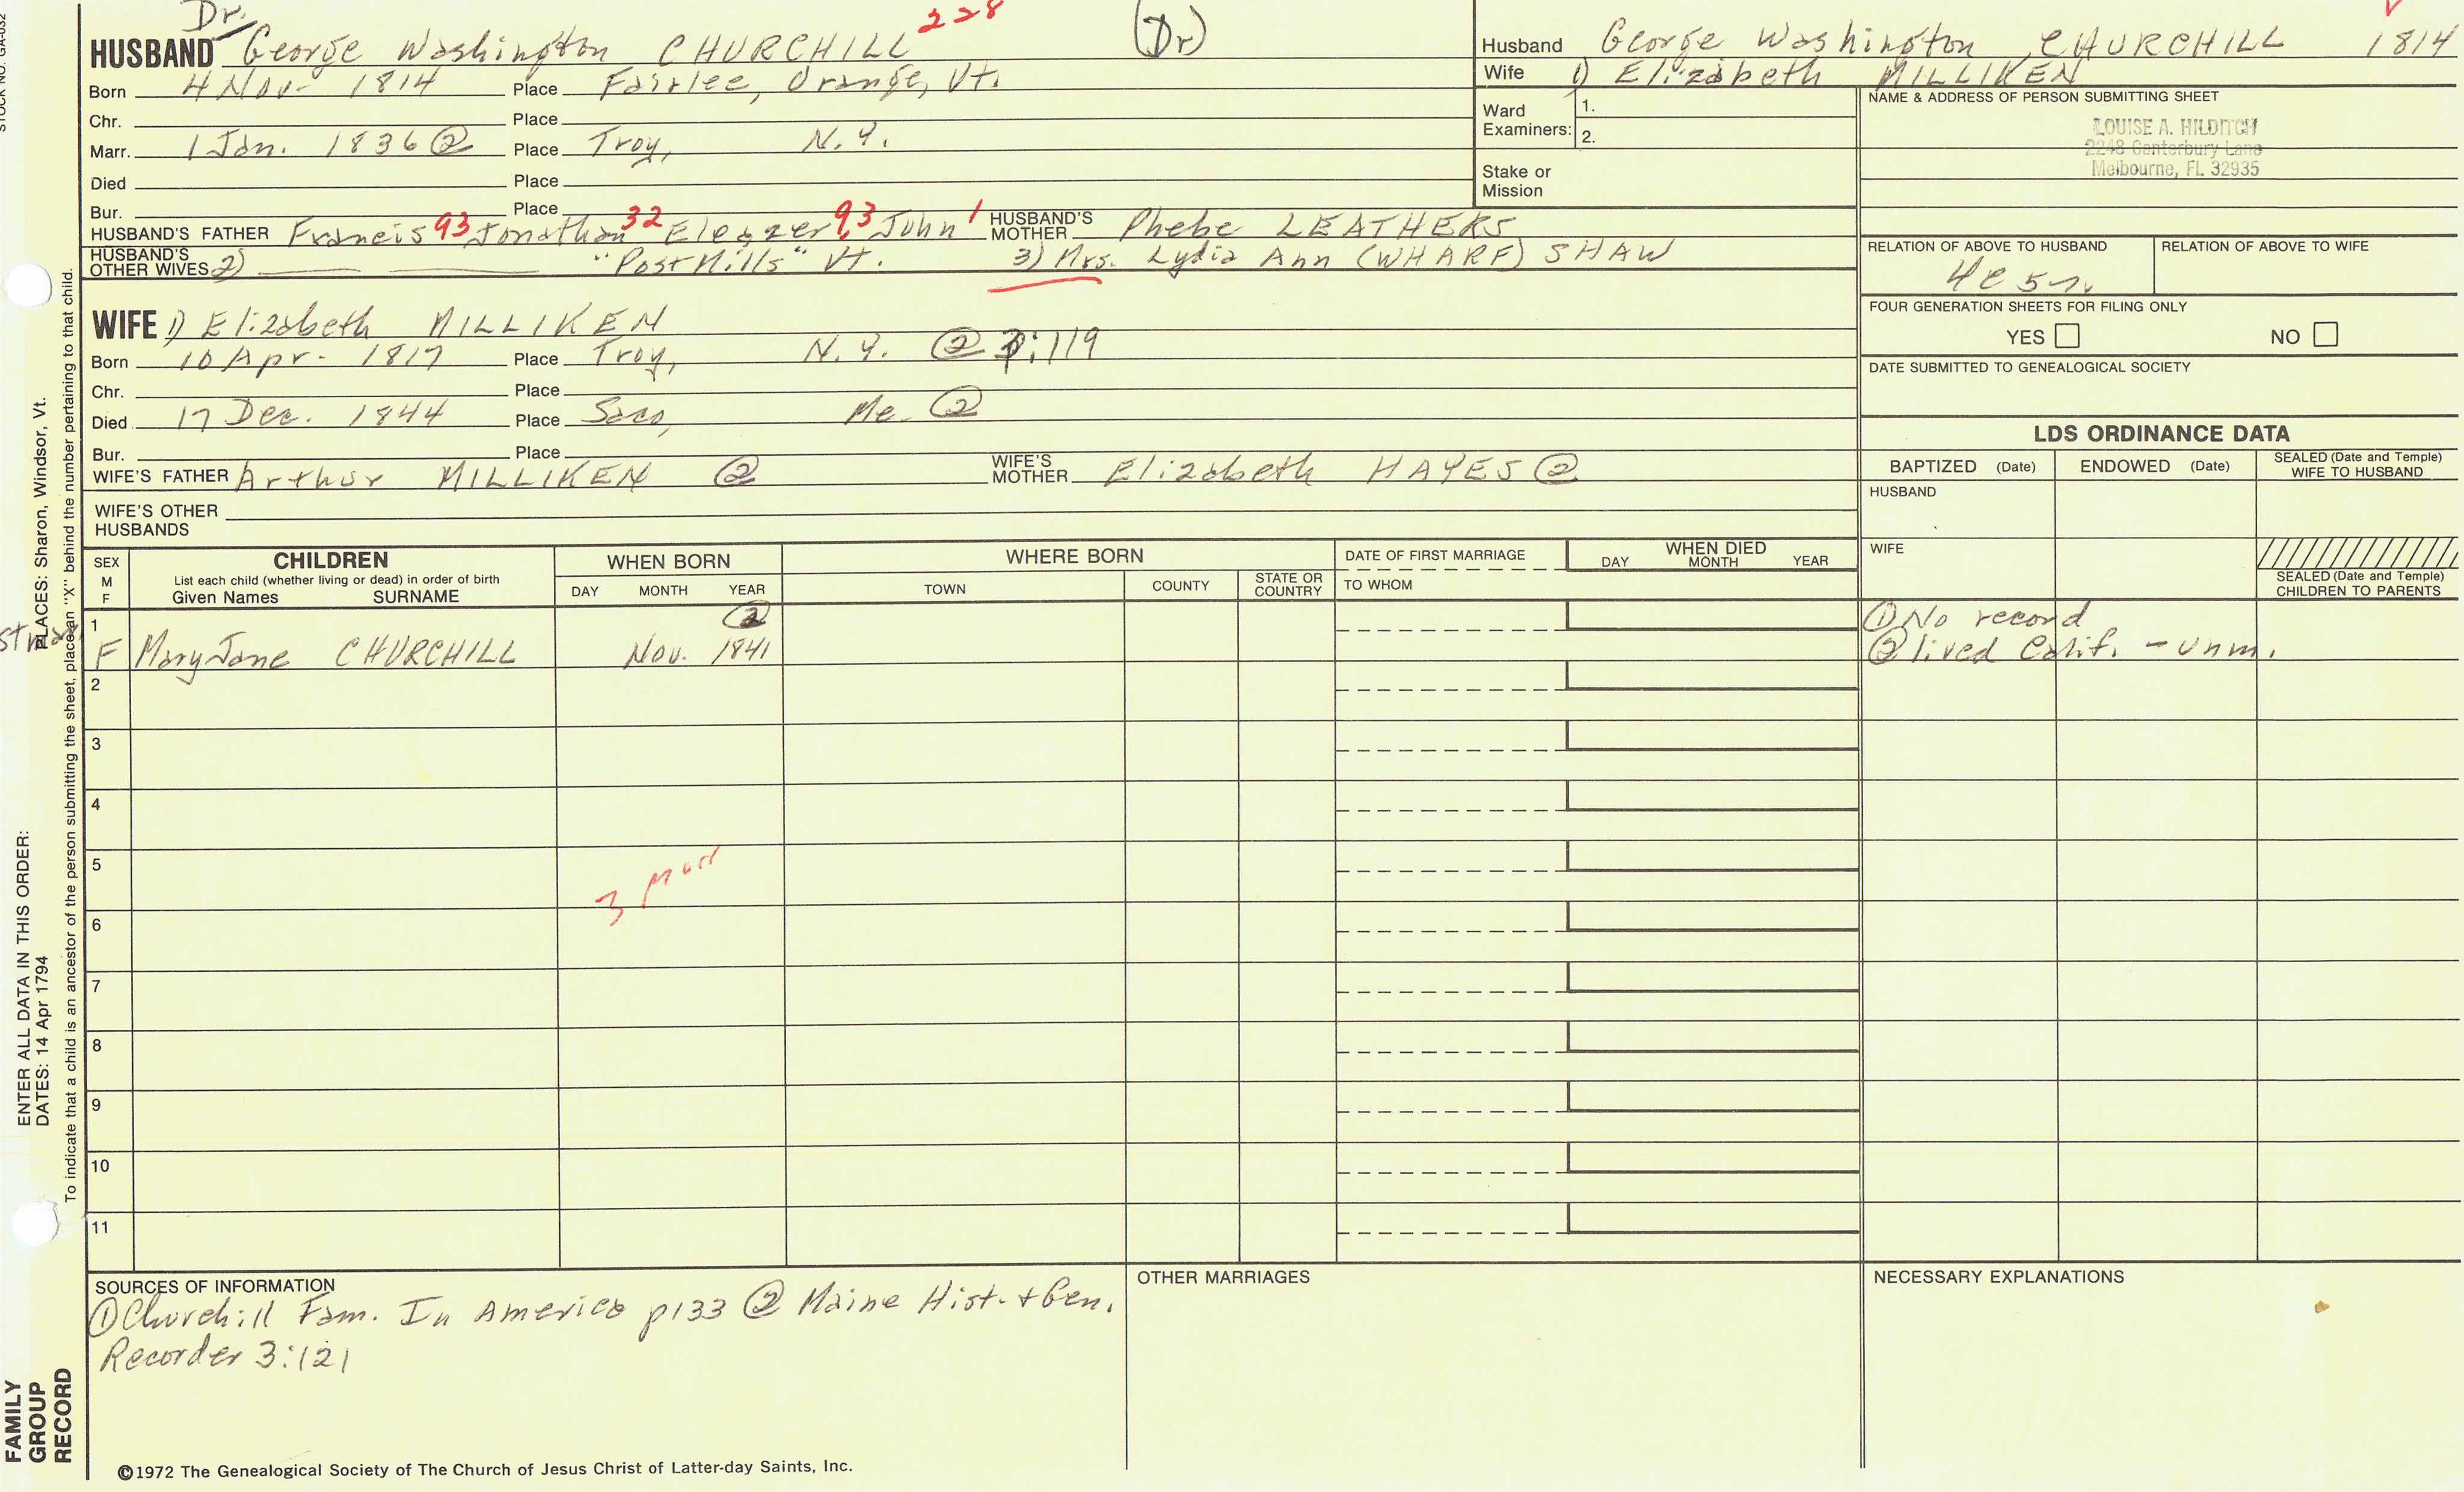 Dr. 228 (Dr)
HUSBAND George Washington CHURCHILL
Born 4 Nov- 1814 Place Fairlee, Orange, Vt.
Chr. Place
Marr. 1 Jan. 1836 ② Place Troy, N.Y.
Died Place
Bur. Place
HUSBAND'S FATHER Francis 93 Jonathan 32 Eleazer 9,3 John 1 HUSBAND'S MOTHER Phebe LEATHERS
HUSBAND'S OTHER WIVES 2) "Post Mills" Vt. 3) Mrs. Lydia Ann (WHARF) SHAW
WIFE 1) Elizabeth MILLIKEN
Born 10 Apr- 1817 Place Troy, N.Y. ② 3:119
Chr. Place
Died 17 Dec. 1844 Place Saco, Me. ②
Bur. Place
WIFE'S FATHER Arthur MILLIKEN ② WIFE'S MOTHER Elizabeth HAYES ②
WIFE'S OTHER
HUSBANDS
Husband George Washington CHURCHILL 1814
Wife 1) Elizabeth MILLIKEN
Ward
Examiners:
1.
2.
Stake or
Mission
NAME & ADDRESS OF PERSON SUBMITTING SHEET
LOUISE A. HILDITCH
2248 Canterbury Lane
Melbourne, FL 32935
RELATION OF ABOVE TO HUSBAND RELATION OF ABOVE TO WIFE
FOUR GENERATION SHEETS FOR FILING ONLY
YES NO
DATE SUBMITTED TO GENEALOGICAL SOCIETY
LDS ORDINANCE DATA
BAPTIZED (Date) ENDOWED (Date) SEALED (Date and Temple) WIFE TO HUSBAND
HUSBAND
WIFE
SEALED (Date and Temple)
CHILDREN TO PARENTS
SEX
M
F
CHILDREN
List each child (whether living or dead) in order of birth
Given Names SURNAME
WHEN BORN
DAY MONTH YEAR
WHERE BORN
TOWN COUNTY STATE OR COUNTRY
DATE OF FIRST MARRIAGE
TO WHOM
WHEN DIED
DAY MONTH YEAR
1 ② ① No record
F Mary Jane CHURCHILL Nov. 1841 ② lived Calif. - unm.
2
3
4
5
3 marr
6
7
8
9
10
11
SOURCES OF INFORMATION
① Churchill Fam. In America p133 ② Maine Hist. + Gen.
Recorder 3:121
OTHER MARRIAGES
NECESSARY EXPLANATIONS
©1972 The Genealogical Society of The Church of Jesus Christ of Latter-day Saints, Inc.
STOCK NO. GA-032
ENTER ALL DATA IN THIS ORDER:
DATES: 14 Apr 1794
PLACES: Sharon, Windsor, Vt.
To indicate that a child is an ancestor of the person submitting the sheet, place an "X" behind the number pertaining to that child.
FAMILY
GROUP
RECORD